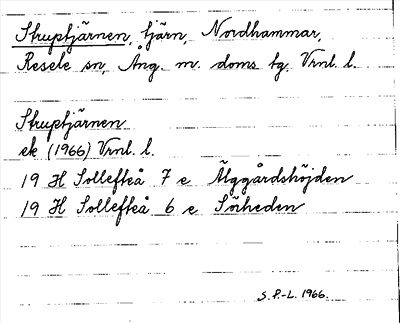 Struptjärnen, tjärn, Nordhammar,
Resele sn, Ång. m. doms tg. Vrnl. l.
Struptjärnen
ek (1966) Vrnl. l.
19 H Sollefteå 7 e Älggårdshöjden
19 H Sollefteå 6 e Sörheden
S. P.-L. 1966.